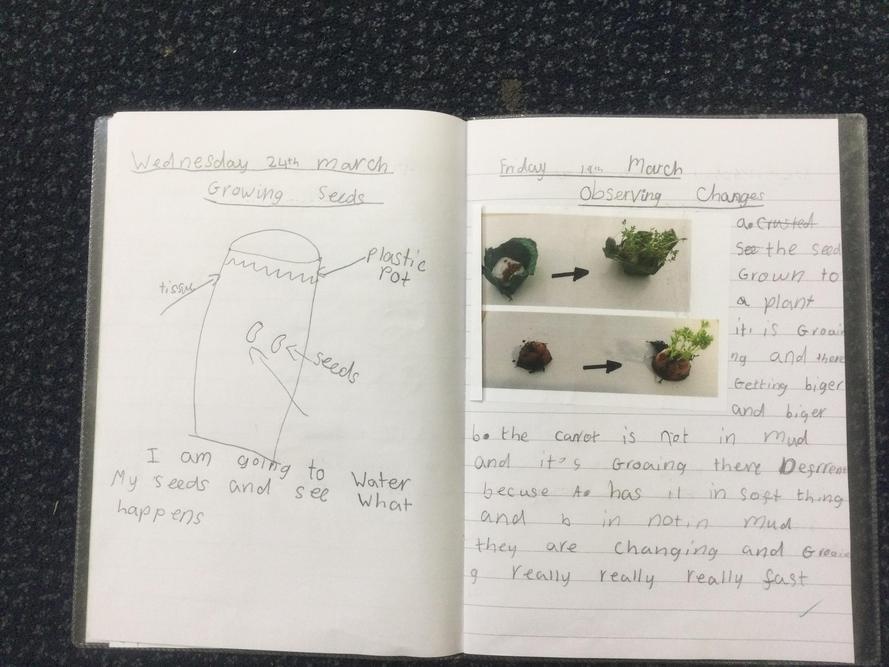 Wednesday 24th march
Growing Seeds
Plastic
Pot
tissue
seeds
I am going to Water
My seeds and see What
happens
Friday 19th March
Observing Changes
a. Crusted
See the seed
Grown to
a plant
it is Groai
ng and there
Getting biger
and biger
b. the carrot is not in mud
and it's Groaing there Deffrent
becuse A. has it in soft thing
and b in not in mud
they are changing and Groai
g really really really fast